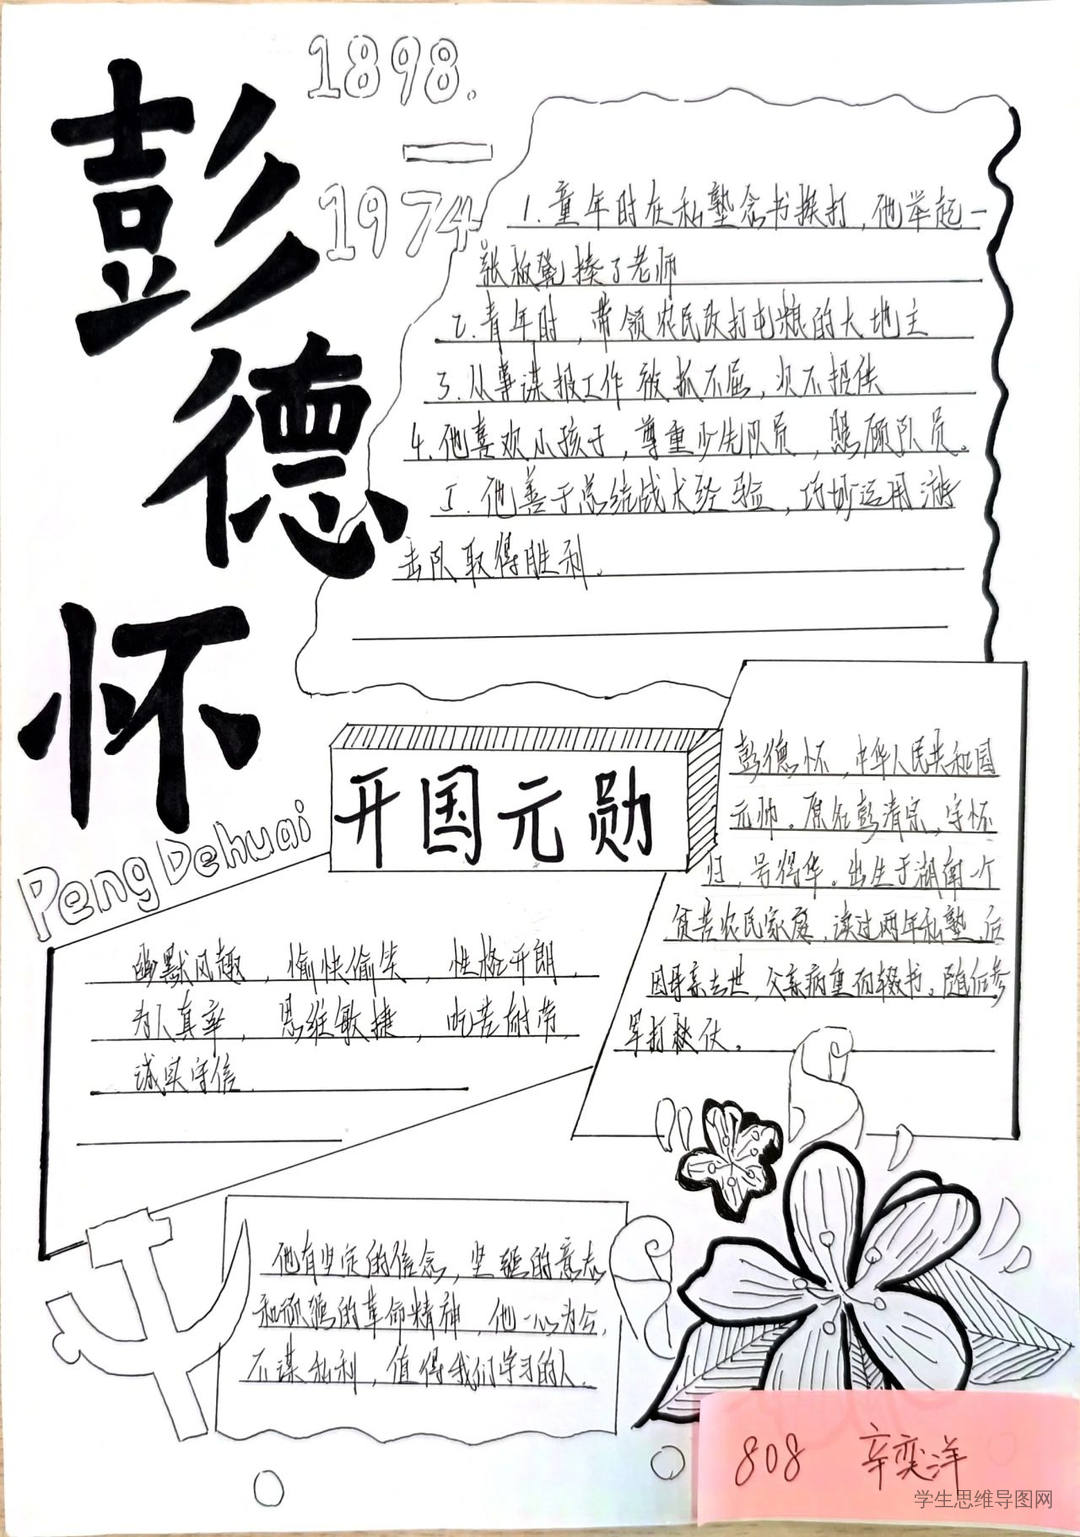 彭德怀
1898.
—
1974
1.童年时在私塾念书挨打,他举起一
张板凳揍了老师
2.青年时,带领农民攻打屯粮的大地主
3.从事谍报工作被抓不屈,决不招供
4.他喜欢小孩子,尊重少先队员,照顾队员。
5.他善于总结战术经验,巧妙运用游
击队取得胜利。
开国元勋
Peng Dehuai
彭德怀,中华人民共和国
元帅。原名彭清宗,字怀
归,号得华。出生于湖南一个
贫苦农民家庭,读过两年私塾,后
因母亲去世,父亲病重而辍书。随后参
军打秋仗。
幽默风趣,愉快偷笑,性格开朗,
为人真率,思维敏捷,吃苦耐劳,
诚实守信.
他有坚定的信念,坚强的意志
和顽强的革命精神,他一心为公,
不谋私利,值得我们学习的人.
808 辛奕洋
学生思维导图网